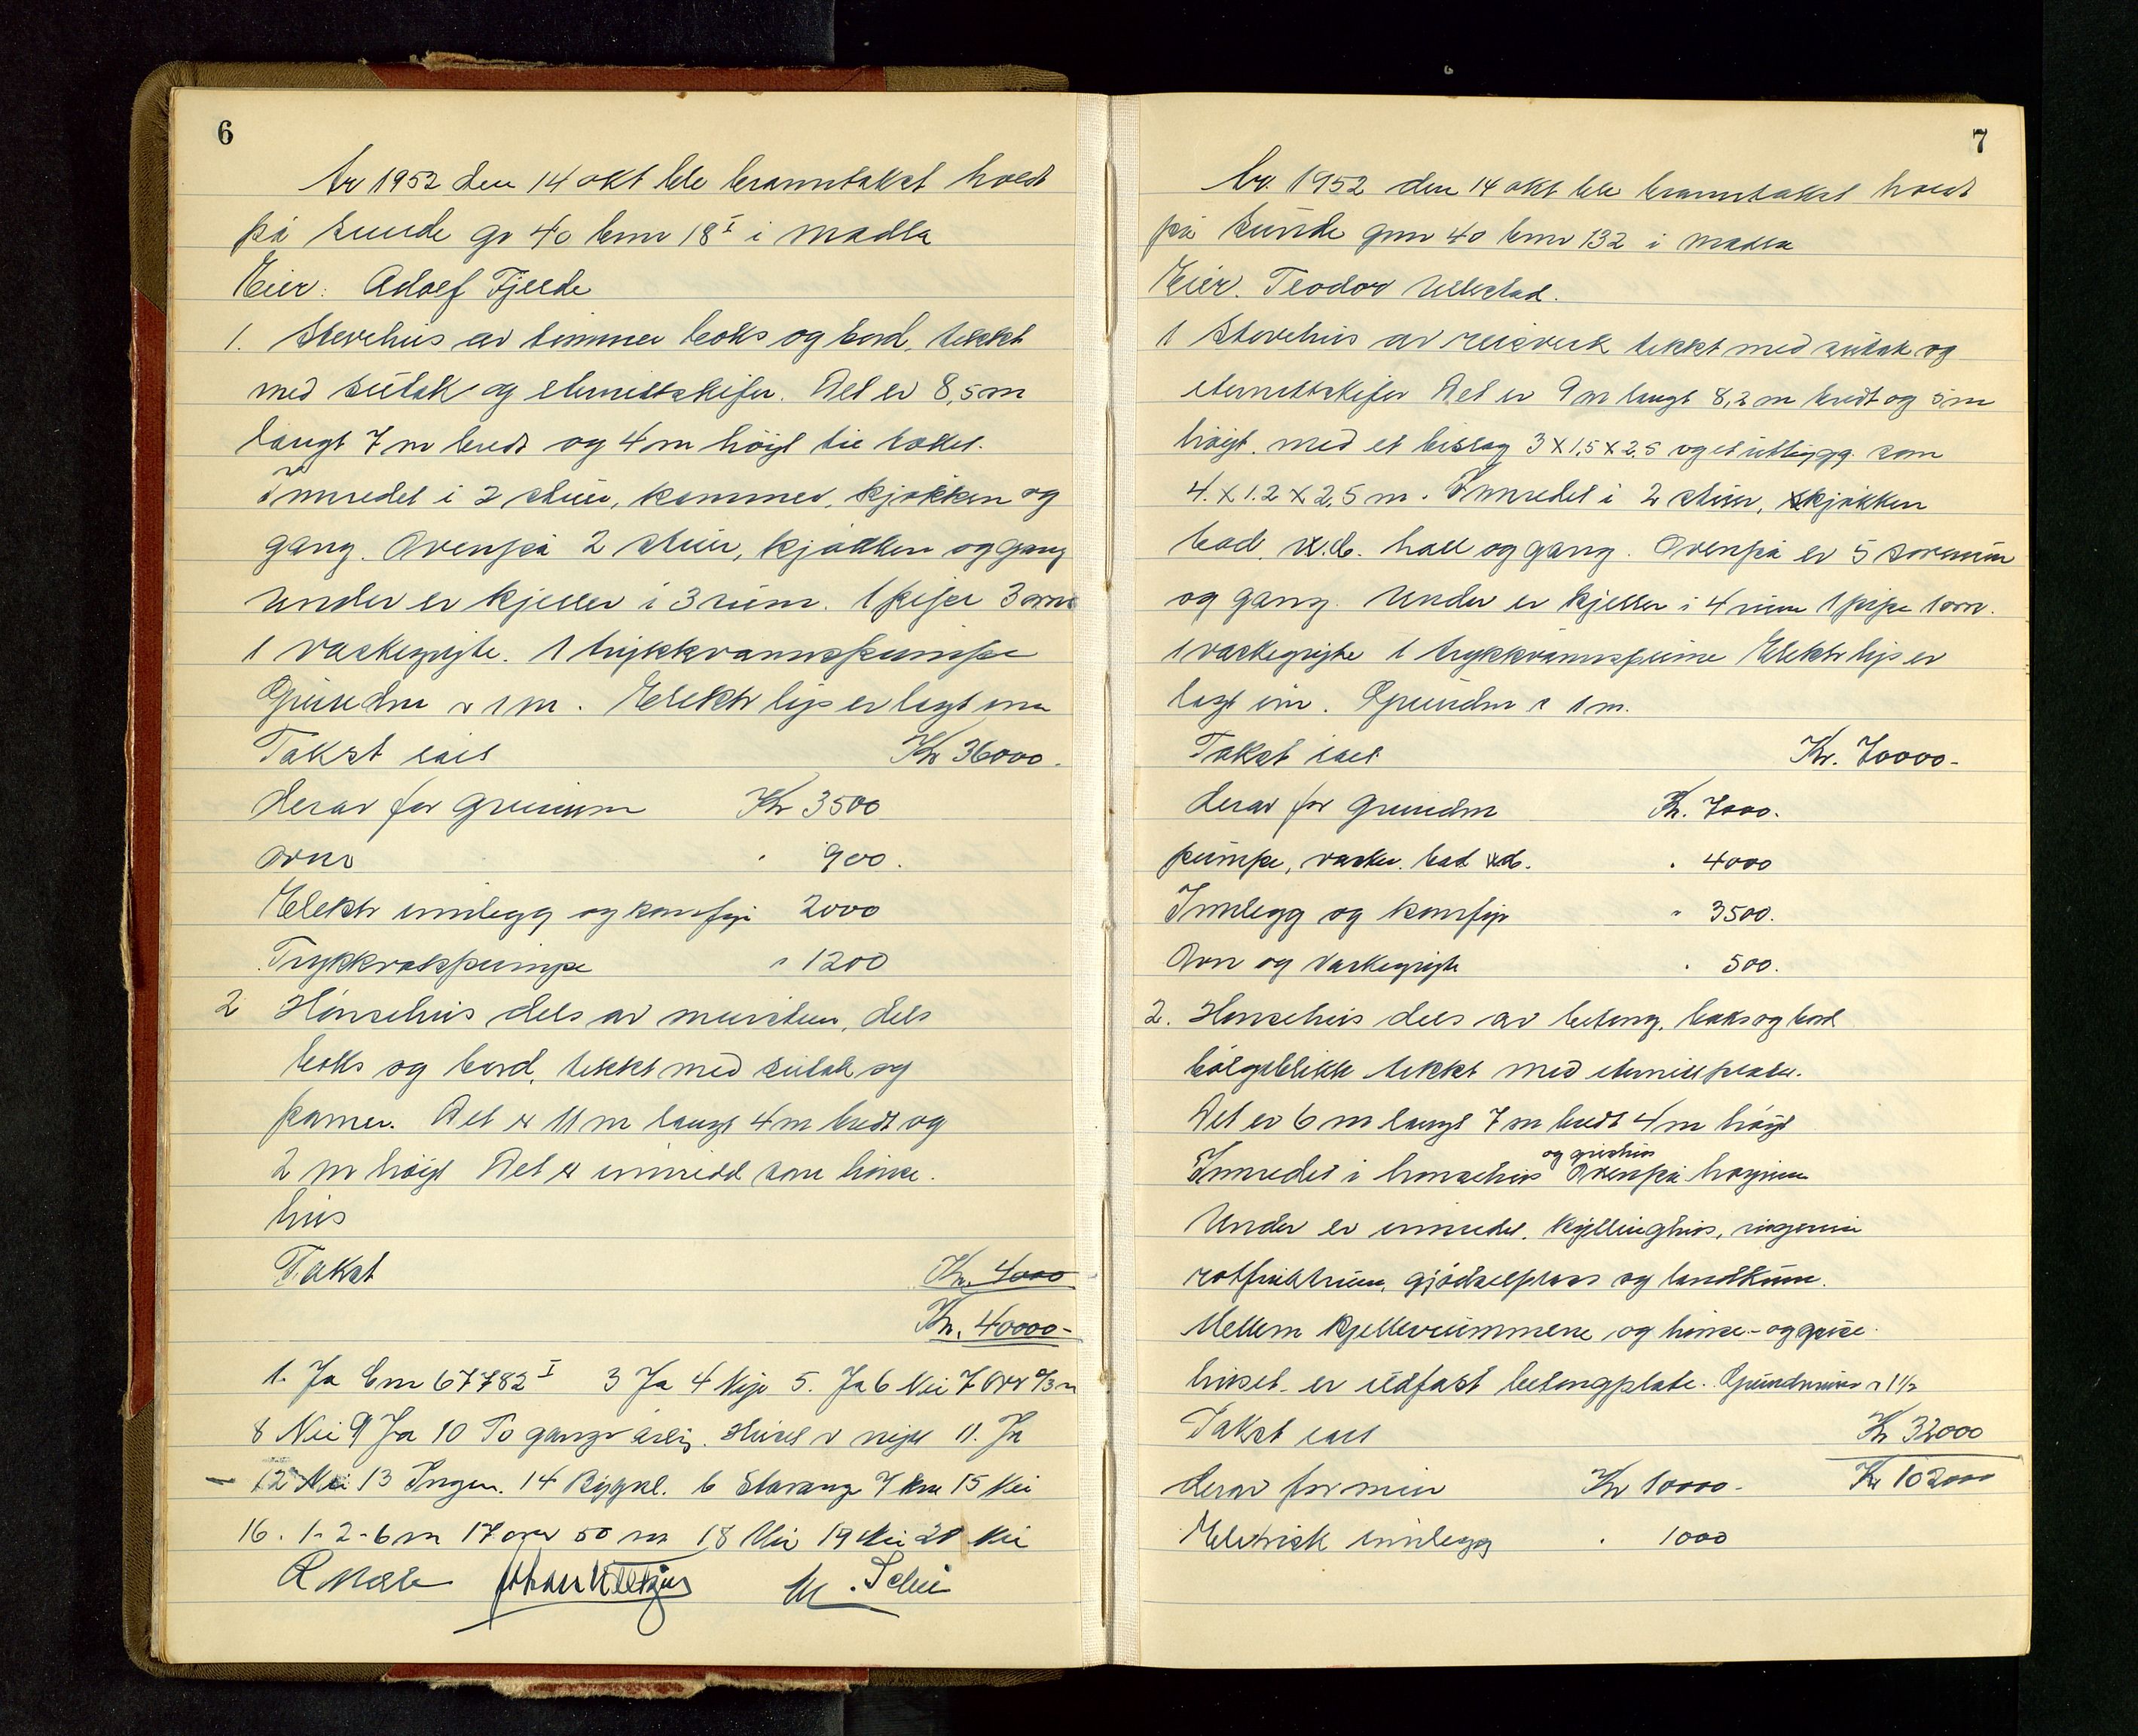 6
År 1952 den 14 okt ble branntakst holdt
på Sunde gr 40 bnr 18 I i Madla
Eier: Adolf Fjelde
1. Stovehus av tømmer boks og bord, tekket
med sutak og eternittskifer. Det er 8,5 m
langt 7 m bredt og 4 m höigt til taket.
Innredet i 2 stuer, kammer, kjøkken og
gang. Ovenpå 2 stuer, kjøkken og gang
Under er kjeller i 3 rum. 1 pipe 3 ovne
1 vaskegryte. 1 trykkvannspumpe
Grundm v 1 m. Elektr lys er lagt inn
Takst ialt Kr 36000.
derav for grunnm Kr 3500
ovne " 900.
Elektr innlegg og komfyr 2000
Trykkvaspumpe " 1200
2 Hönsehus dels av murstein, dels
boks og bord, tekkt med sutak og
panner. Det er 11 m langt 4 m bredt og
2 m höigt Det er innredd som hönse
hus
Takst Kr. 4000
Kr. 40000-
1. Ja Bnr 67782 I 3 Ja 4 Nye 5. Ja 6 Nei 7 Over 2/3 m
8 Nei 9 Ja 10 To ganger årlig. Huset er nytt 11. Ja
- 12 Nei 13 Ingen. 14 Bygnl. b Stavang 7 km 15 Nei
16. 1-2-6 m 17 over 50 m 18 Nei 19 Nei 20 Nei
7
År 1952 den 14 okt ble branntakst holdt
på Sunde gnr 40 bnr 132 i Madla
Eier. Teodor Ullestad.
1 Stovehus av reisverk tekkt med sutak og
eternittskifer Det er 9 m langt 8,2 m bredt og 5 m
höigt. med et bislag 3 x 1,5 x 2,5 og et utbygg som
4. x 1.2 x 2,5 m. Innredet i 2 stuer, kjøkken
bad, w.c. hall og gang. Ovenpå er 5 soverum
og gang. Under er kjeller i 4 rum 1 pipe 1 ovn.
1 vaskegryte 1 trykkvannspume Elektr lys er
lagt inn. Grundm v 1 m.
Takst ialt Kr. 70000-
derav for grundm Kr. 7000.
pumpe, vaskr. bad wc. " 4000
Innlegg og komfyr " 3500.
Ovn og vaskegryte " 500.
2. Hönsehus dels av betong, boks og bord
bölgeblikk tekkt med eternittplater.
Det er 6 m langt 7 m bredt 4 m höigt
og grishus
Innredet i hønsehus Ovenpå høyrum
Under er innredet. kyllinghus,
rotfruktrum, gjödselplass og landkum.
Mellem kjellerrummene og hönse- og grise-
huset er ildfast betongplate. Grundmur v 1 1/2
Takst ialt Kr 32000
derav for mur Kr 10000- Kr 102000
Elektrisk innlegg " 1000